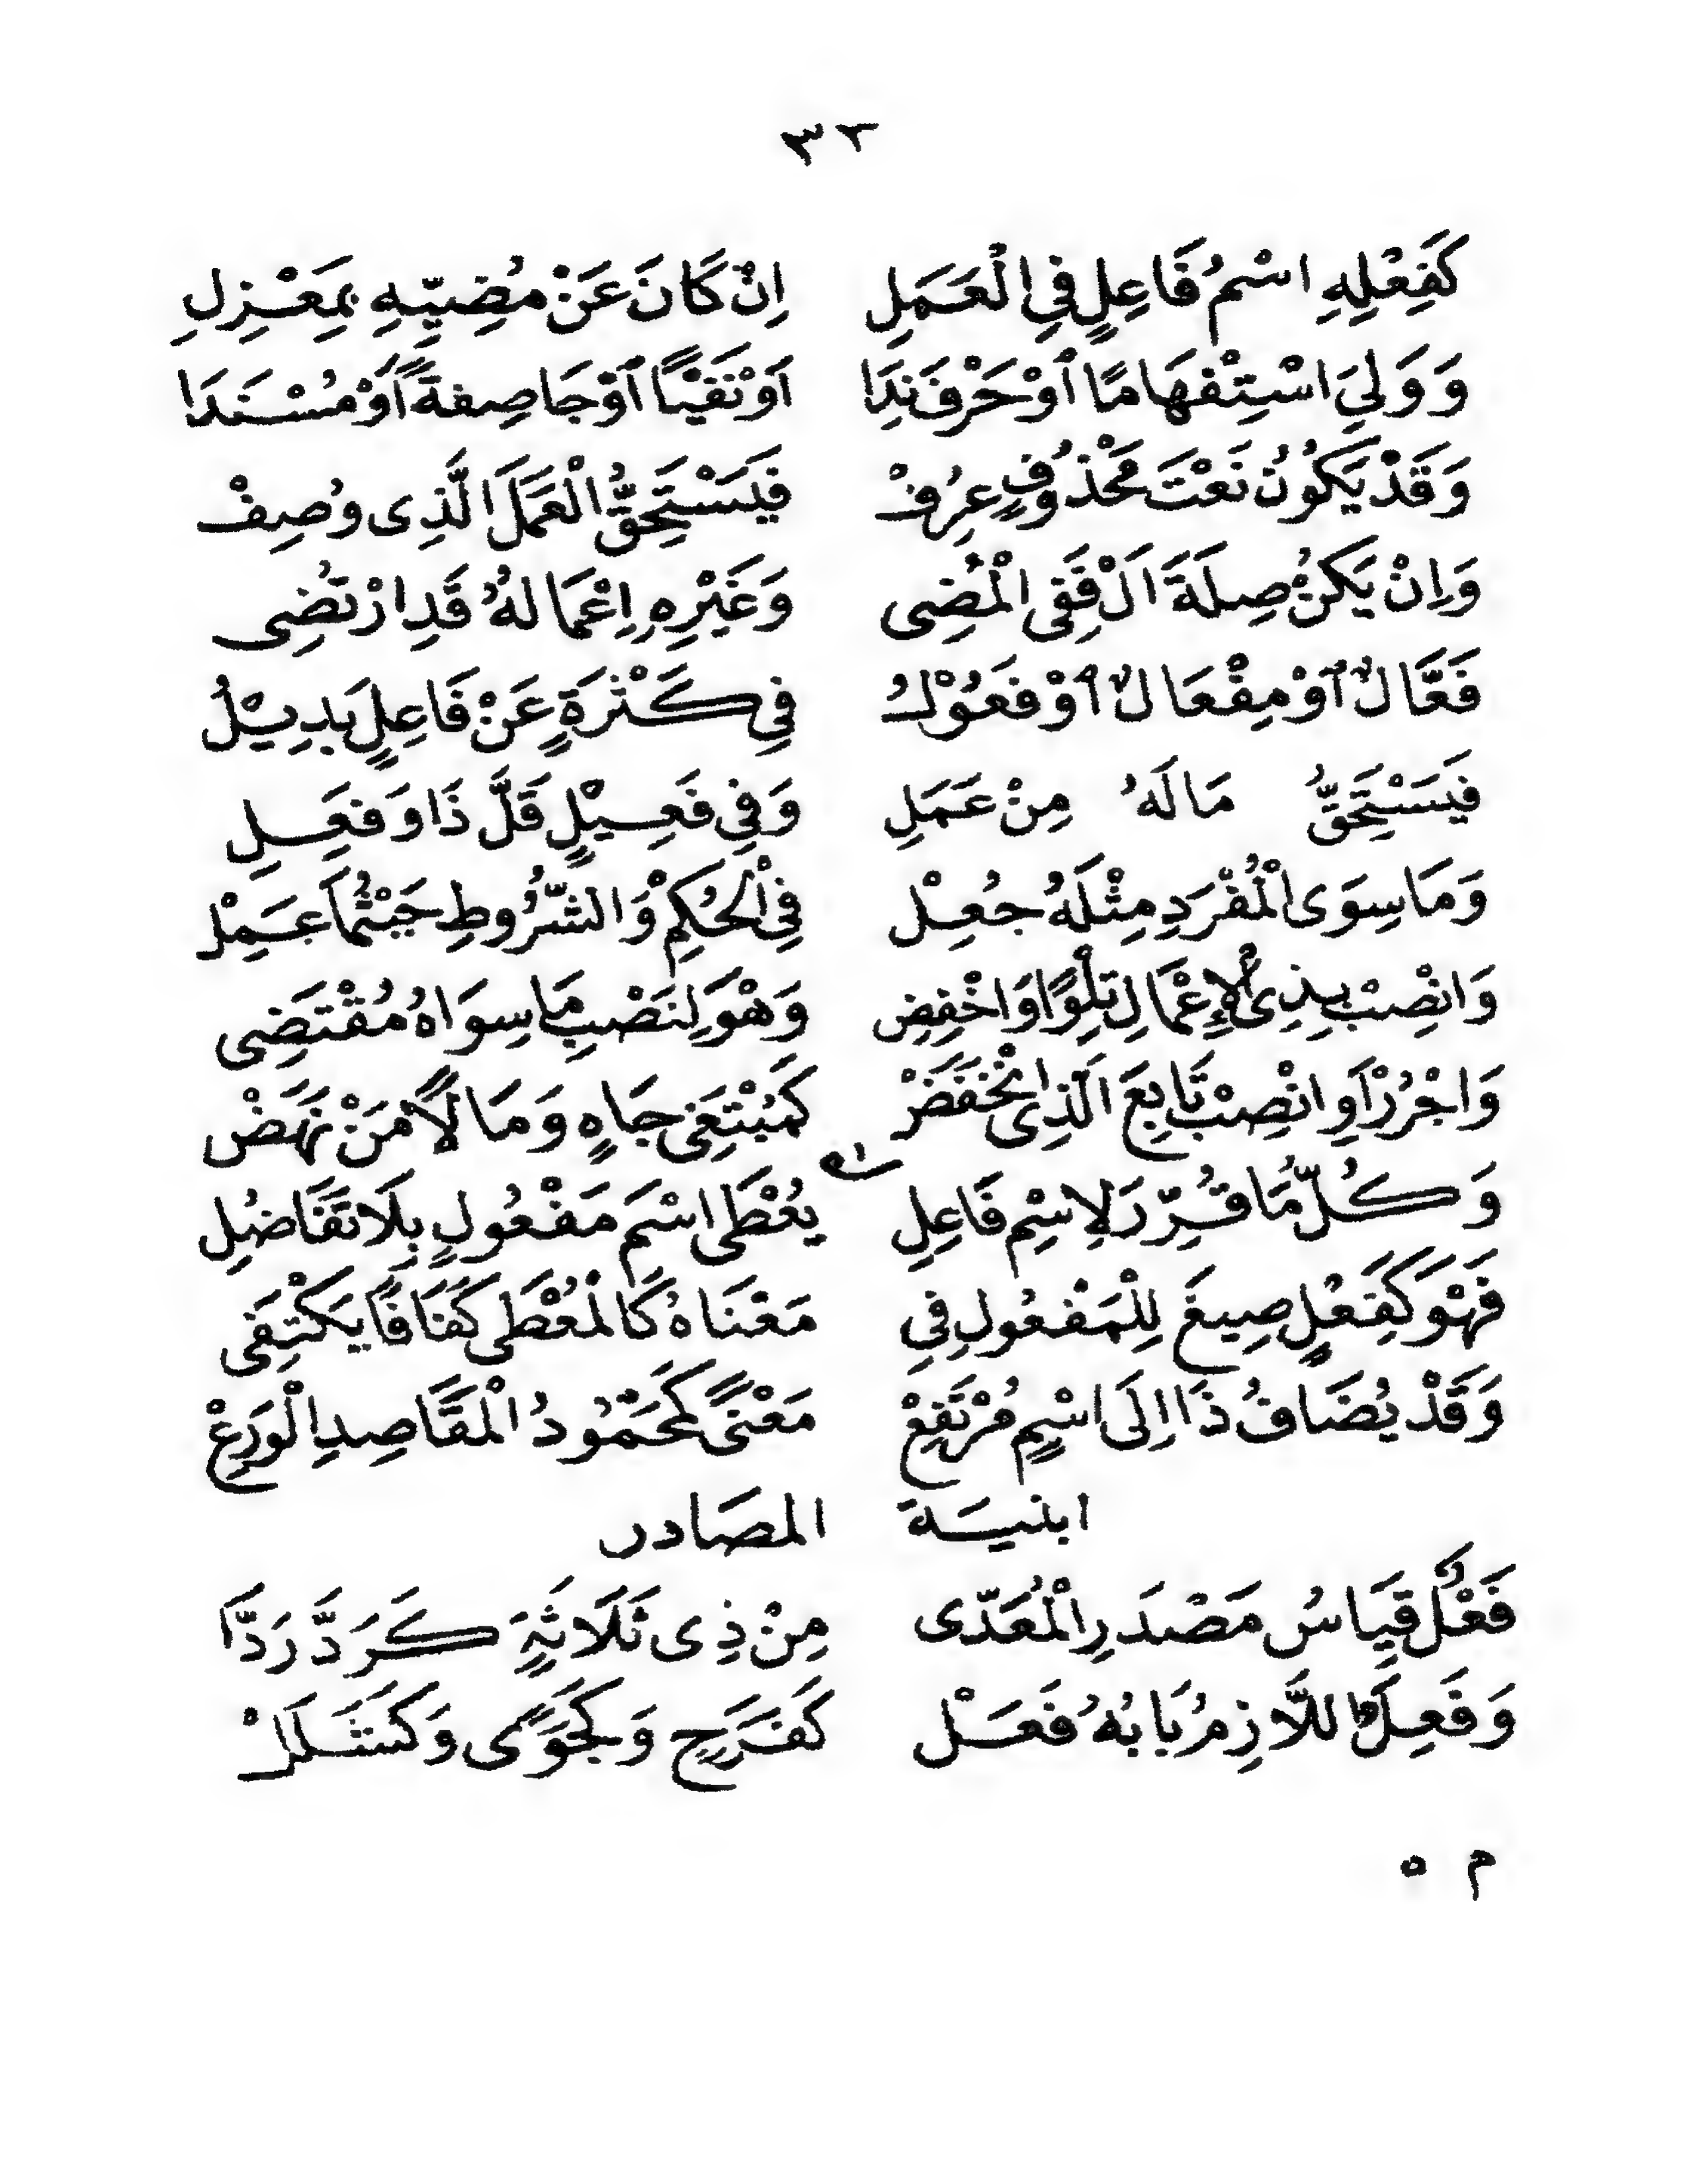 ٣٢
كَفِعْلِهِ اسْمُ فَاعِلٍ فِي الْعَمَلِ اِنْ كَانَ عَنْ مُضِيِّهِ بِمَعْزِلِ
وَوَلِيَ اسْتِفْهَامًا اَوْ حَرْفَ نِدَا اَوْ نَفْيًا اَوْ جَا صِفَةً اَوْ مُسْنَدَا
وَقَدْ يَكُونُ نَعْتَ مَحْذُوفٍ عُرِفْ فَيَسْتَحِقُّ الْعَمَلَ الَّذِى وُصِفْ
وَاِنْ يَكُنْ صِلَةَ اَلْ فَفِى الْمُضِى وَغَيْرِهِ اِعْمَالُهُ قَدِ ارْتُضِى
فَعَّالٌ اَوْ مِفْعَالٌ اَوْ فَعُوْلُ فِي كَثْرَةٍ عَنْ فَاعِلٍ بَدِيْلُ
فَيَسْتَحِقُّ مَالَهُ مِنْ عَمَلِ وَفِي فَعِيْلٍ قَلَّ ذَا وَفَعِلِ
وَمَا سِوَى الْمُفْرَدِ مِثْلَهُ جُعِلْ فِي الْحُكْمِ وَالشُّرُوطِ حَيْثُمَا عَمِلْ
وَانْصِبْ بِذِى الْاِعْمَالِ تِلْوًا وَاخْفِضِ وَهْوَ لِنَصْبِ مَا سِوَاهُ مُقْتَضِى
وَاجْرُرْ اَوِ انْصِبْ تَابِعَ الَّذِى انْخَفَضْ كَمُبْتَغِى جَاهٍ وَمَالًا مَنْ نَهَضْ
وَكُلُّ مَا قُرِّرَ لِاسْمِ فَاعِلِ يُعْطَى اسْمَ مَفْعُولٍ بِلَا تَفَاضُلِ
فَهْوَ كَفِعْلٍ صِيغَ لِلْمَفْعُولِ فِي مَعْنَاهُ كَالْمُعْطَى كَفَافًا يَكْتَفِى
وَقَدْ يُضَافُ ذَا اِلَى اسْمٍ مُرْتَفِعْ مَعْنًى كَمَحْمُودُ الْمَقَاصِدِ الْوَرِعْ
ابنية المصادر
فَعْلٌ قِيَاسُ مَصْدَرِ الْمُعَدَّى مِنْ ذِى ثَلَاثَةٍ كَرَدَّ رَدَّا
وَفَعِلَ اللَّازِمُ بَابُهُ فَعَلْ كَفَرَحٍ وَكَجَوًى وَكَشَلَلْ
م ٥